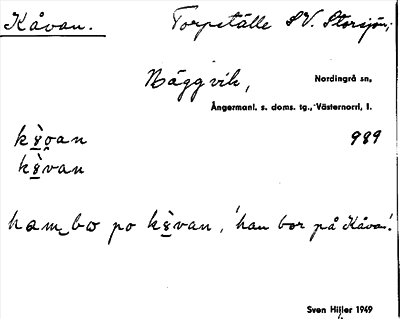 Kåvan. Torpställe S.V. Storsjön;
Häggvik, Nordingrå sn,
Ångermanl. s. doms. tg., Västernorrl. l.
989
kə̀o̯an
kə̀van
ham‿bω po kə̀van, 'han bor på Kåvan'.
Sven Hiljer 1949